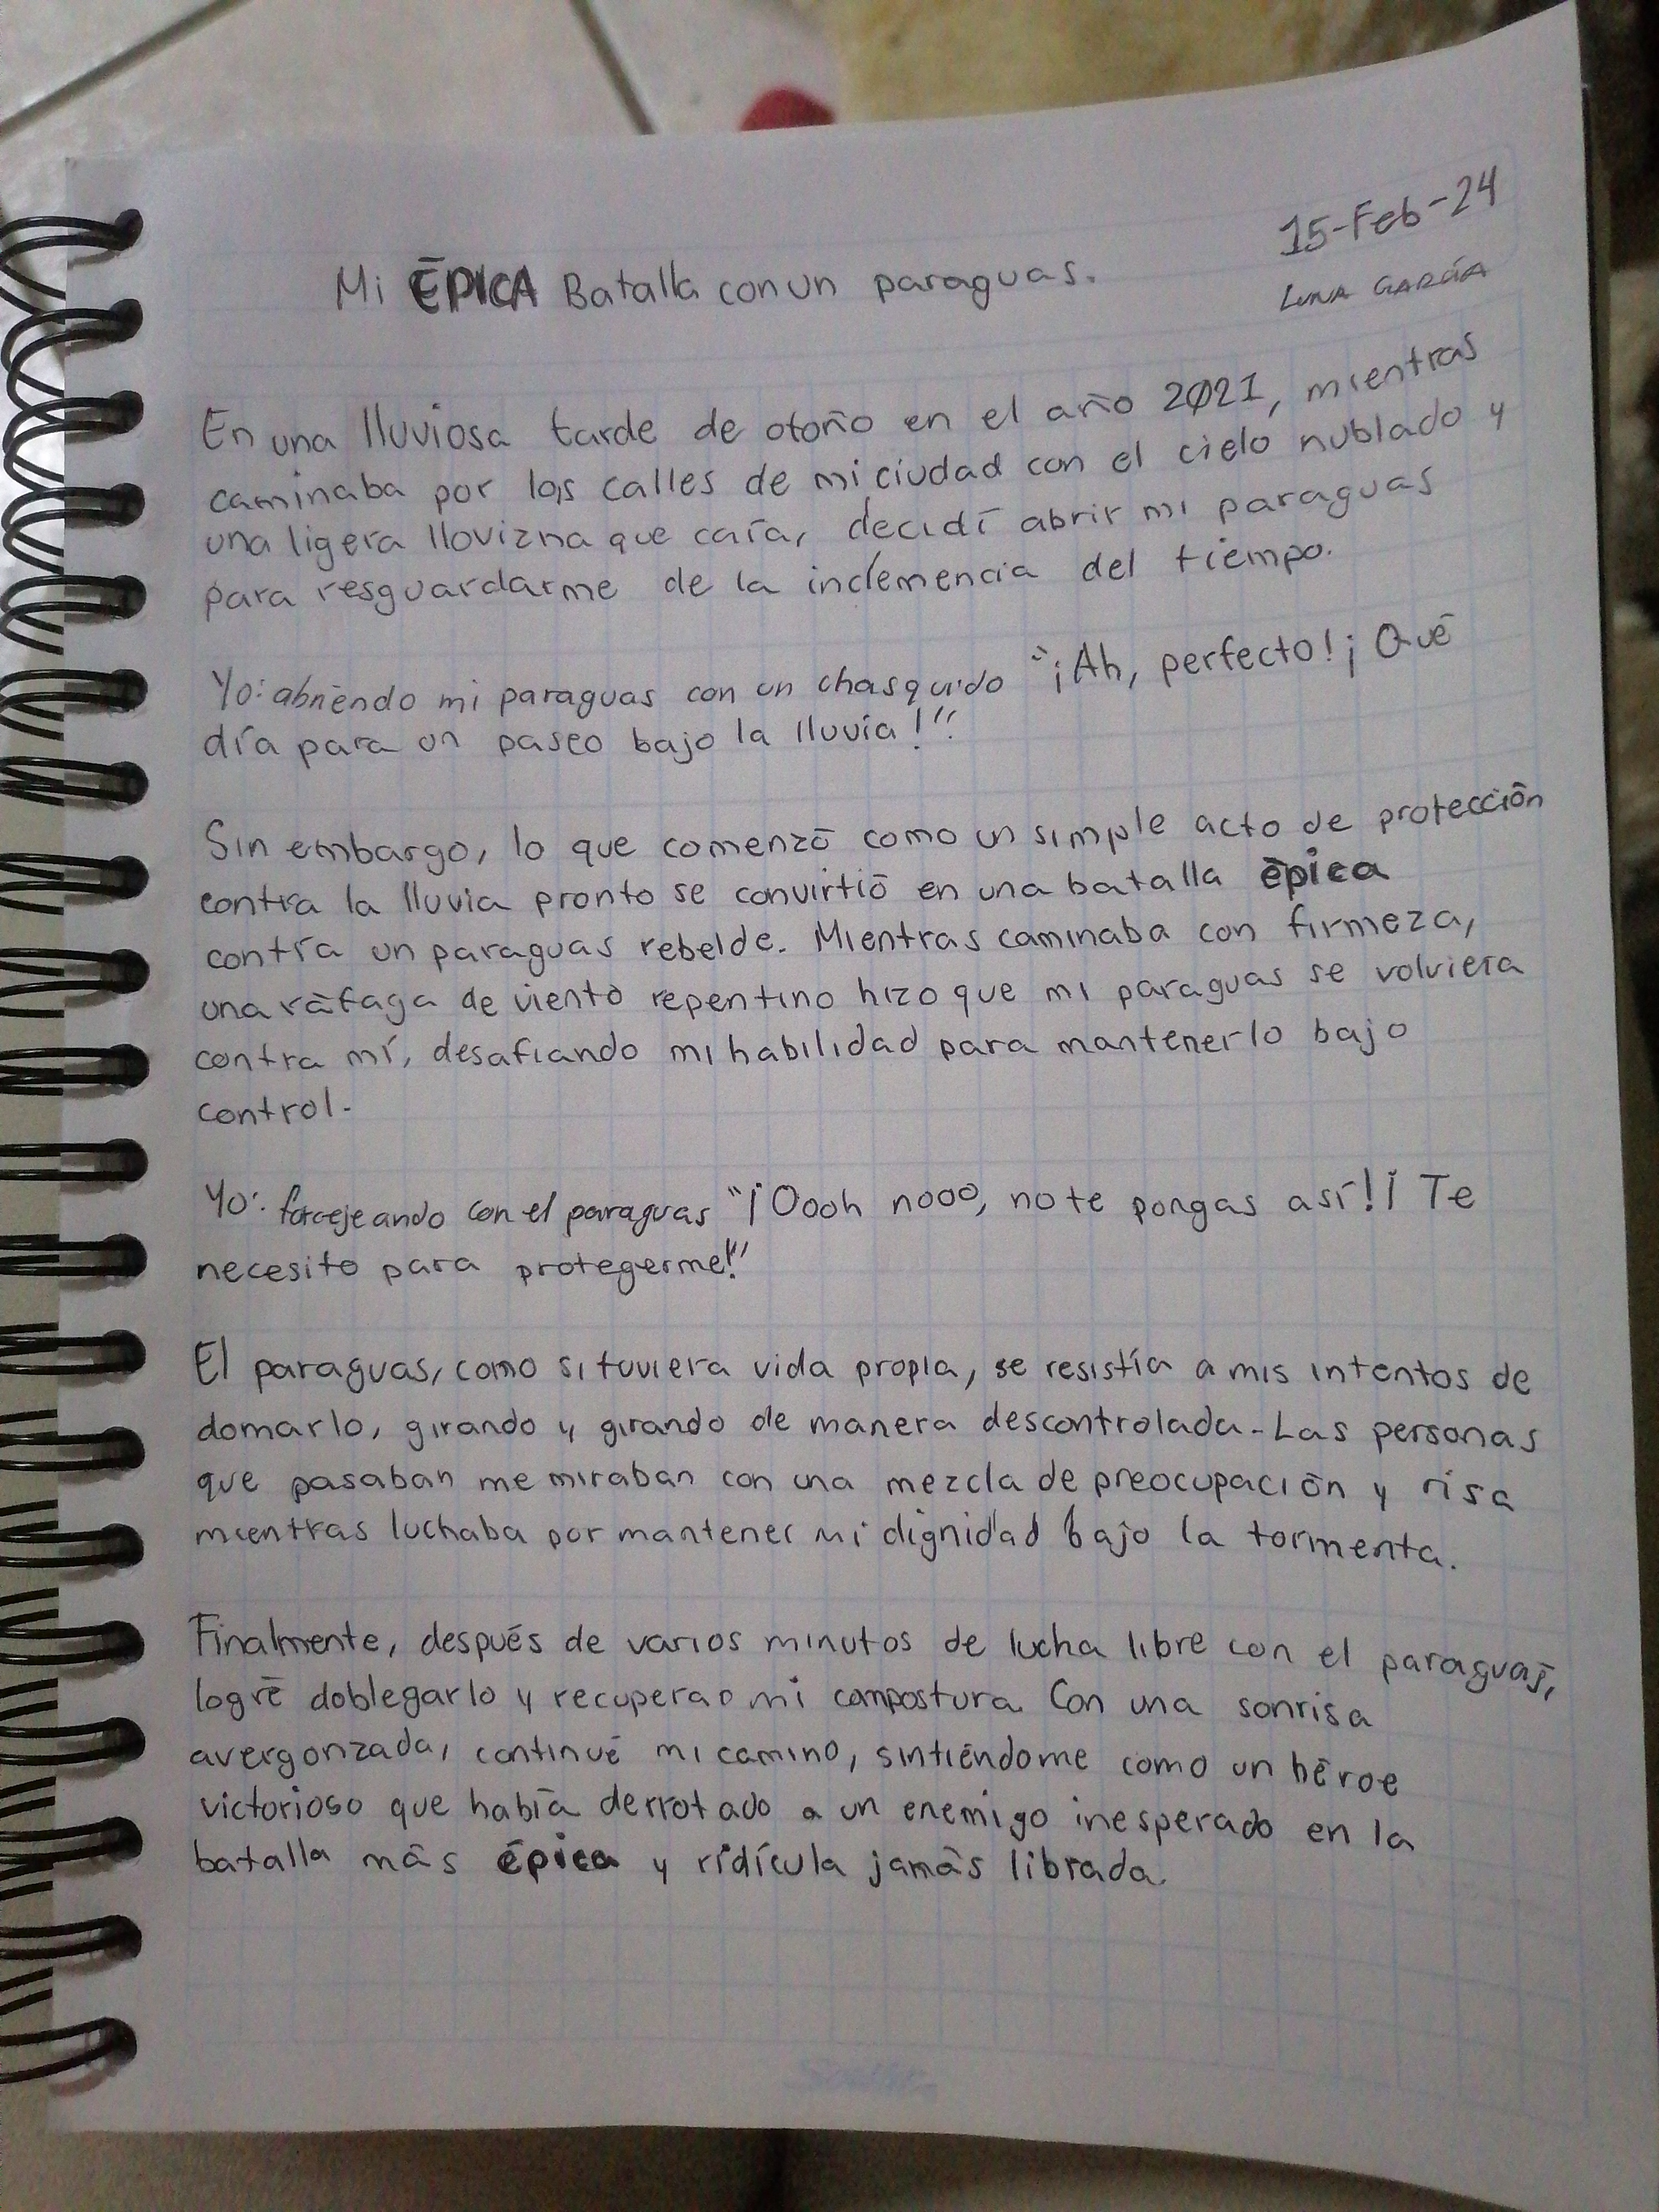 15-Feb-24
Mi ÉPICA Batalla con un paraguas.
LUNA GARCÍA
En una lluviosa tarde de otoño en el año 2021, mientras
caminaba por las calles de mi ciudad con el cielo nublado y
una ligera llovizna que caía, decidí abrir mi paraguas
para resguardarme de la inclemencia del tiempo.
Yo: abriendo mi paraguas con un chasquido "¡Ah, perfecto! ¡Qué
día para un paseo bajo la lluvia!".
Sin embargo, lo que comenzó como un simple acto de protección
contra la lluvia pronto se convirtió en una batalla épica
contra un paraguas rebelde. Mientras caminaba con firmeza,
una ráfaga de viento repentino hizo que mi paraguas se volviera
contra mí, desafiando mi habilidad para mantenerlo bajo
control.
Yo: forcejeando con el paraguas "¡Oooh nooo, no te pongas así! ¡Te
necesito para protegerme!"
El paraguas, como si tuviera vida propia, se resistía a mis intentos de
domarlo, girando y girando de manera descontrolada. Las personas
que pasaban me miraban con una mezcla de preocupación y risa
mientras luchaba por mantener mi dignidad bajo la tormenta.
Finalmente, después de varios minutos de lucha libre con el paraguas,
logré doblegarlo y mi compostura. Con una sonrisa
avergonzada, continué mi camino, sintiéndome como un héroe
victorioso que había derrotado a un enemigo inesperado en la
batalla más épica y ridícula jamás librada.